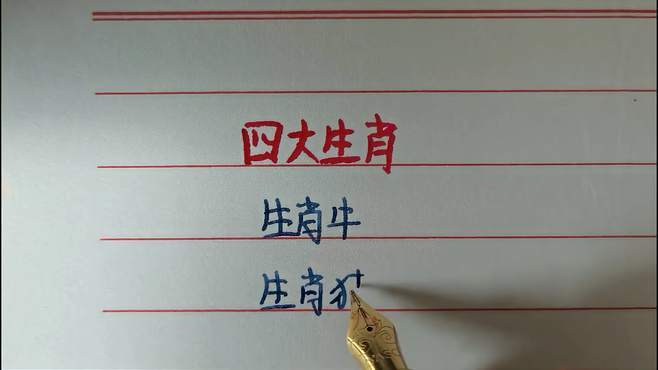 四大生肖
生肖牛
生肖